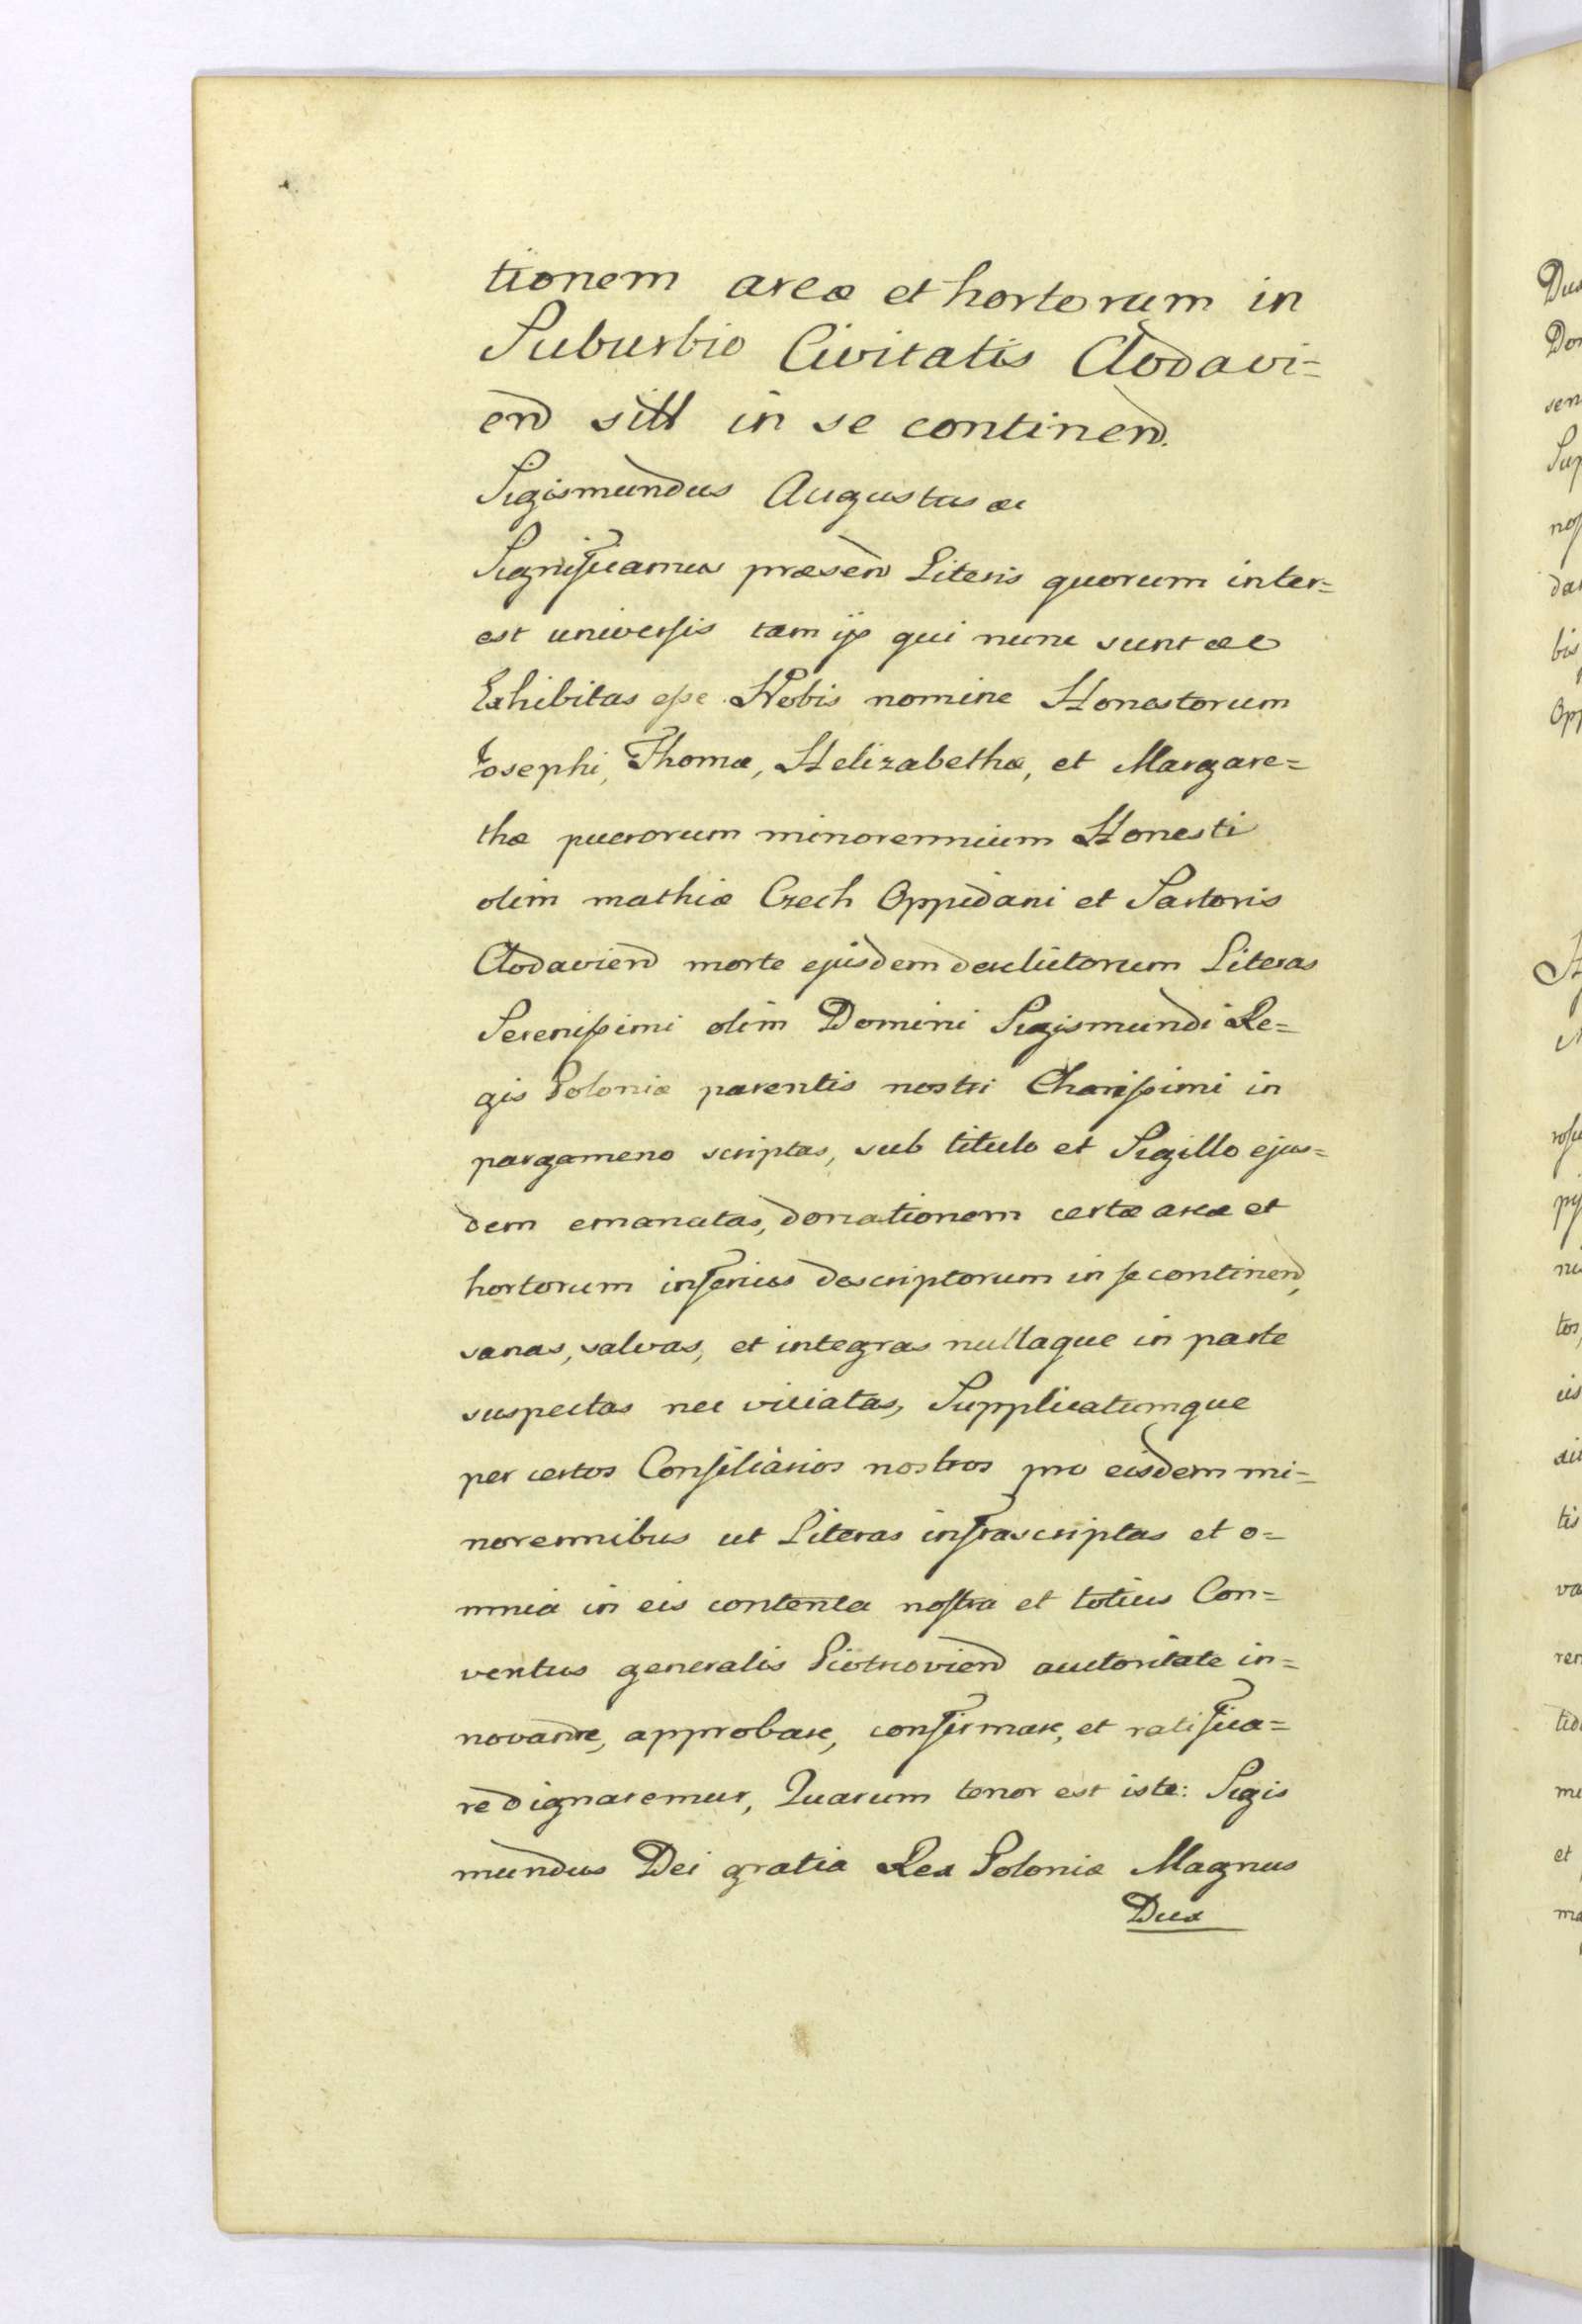 tionem areæ et hortorum in
Suburbio Civitatis Clodavi=
end sitt in se continend.
Sigismundus Augustus &c
Significamus præsend Literis quorum inter=
est universis tam ijs qui nunc sunt &c
Exhibitas esse Nobis nomine Honestorum
Josephi, Thomæ, Helizabethæ, et Margare=
thæ puerorum minorennium Honesti
olim mathiæ Czech Oppidani et Sartoris
Clodaviend morte ejusdem derelictorum Literas
Serenissimi olim Domini Sigismundi Re=
gis Poloniæ parentis nostri Charissimi in
pargameno scriptas, sub titulo et Sigillo ejus=
dem emanatas, donationem certæ areæ et
hortorum inferius descriptorum in se continend,
sanas, salvas, et integras nullaque in parte
suspectas nec viciatas, Supplicatumque
per certos Consiliarios nostros pro eisdem mi=
norennibus ut Literas infrascriptas et o=
mnia in eis contenta nostra et totius Con=
ventus generalis Piotrcoviend auctoritate in=
novare, approbare, confirmare, et ratifica=
re dignaremur, Quarum tenor est iste: Sigis
mundus Dei gratia Rex Poloniæ Magnus
Dux